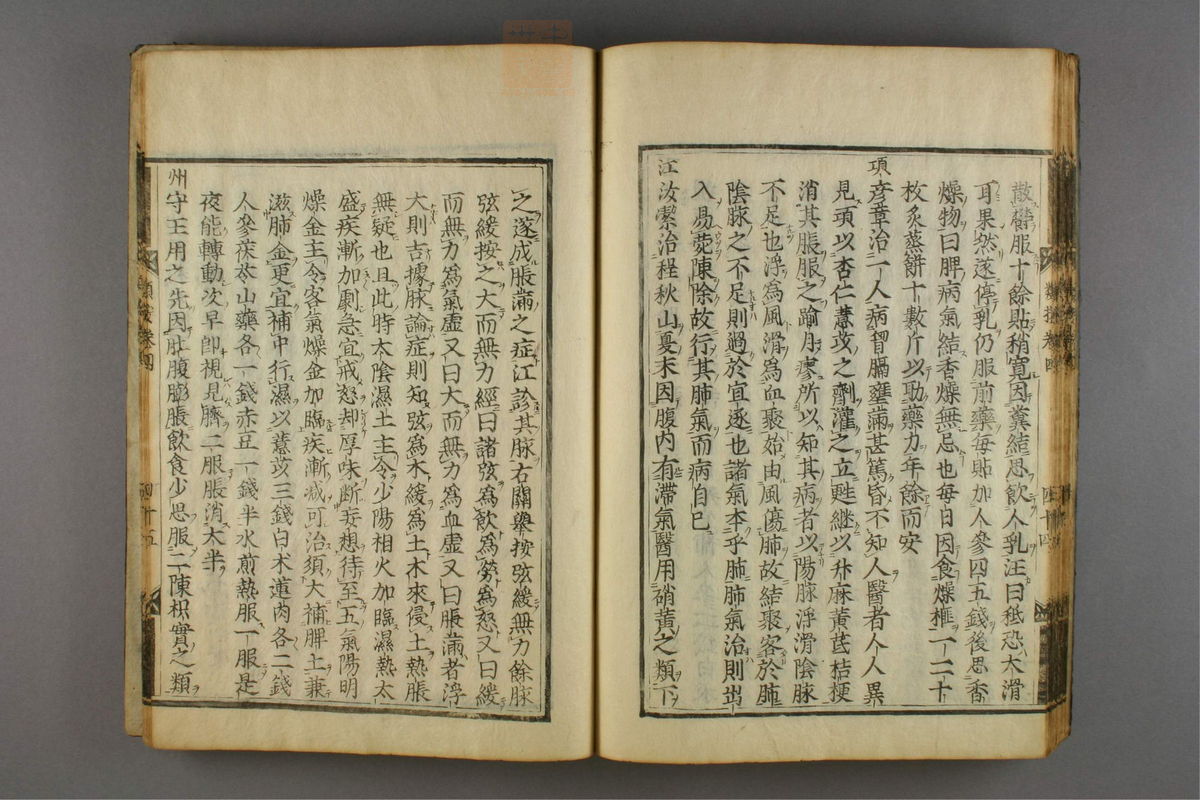 散欝服十餘貼稍寛因糞結思飲人乳汪曰秪恐大滑
耳果然遂停乳仍服前藥每貼加人參四五錢後思香
燥物曰脾病氣結香燥無忌也每日因食燥榧一二十
枚炙蒸餅十數片以助藥力年餘而安
項彦章治一人病胷膈壅滿甚篤昏不知人醫者人人異
見項以杏仁薏苡之劑灌之立甦継以升麻黄芪桔梗
消其脹服之踰月瘳所以知其病者以陽脉浮滑陰脉
不足也浮為風滑為血聚始由風傷肺故結聚客於肺
陰脉之不足則過於宜逐也諸氣本乎肺肺氣治則出
入易菀陳除故行其肺氣而病自已
江汝潔治程秋山夏末因腹内有滯氣醫用硝黄之類下
類案卷四
四十四
之遂成脹滿之症江診其脉右關舉按弦緩無力餘脉
弦緩按之大而無力經曰諸弦為飲為勞為怒又曰緩
而無力為氣虚又曰大而無力為血虚又曰脹滿者浮
大則吉據脉論症則知弦為木緩為土木來侵土熱脹
無疑也且此時太陰濕土主令少陽相火加臨濕熱太
盛疾漸加劇急宜戒怒却厚味断妄想待至五氣陽明
燥金主令客氣燥金加臨疾漸减可治須大補脾土兼
滋肺金更宜補中行濕以薏苡三錢白朮蓮肉各二錢
人參茯苓山藥各一錢赤豆一錢半水煎熱服一服是
夜能轉動次早卽視見臍二服脹消大半
州守王用之先因肚腹膨脹飲食少思服二陳枳實之類
類案卷四
四十五